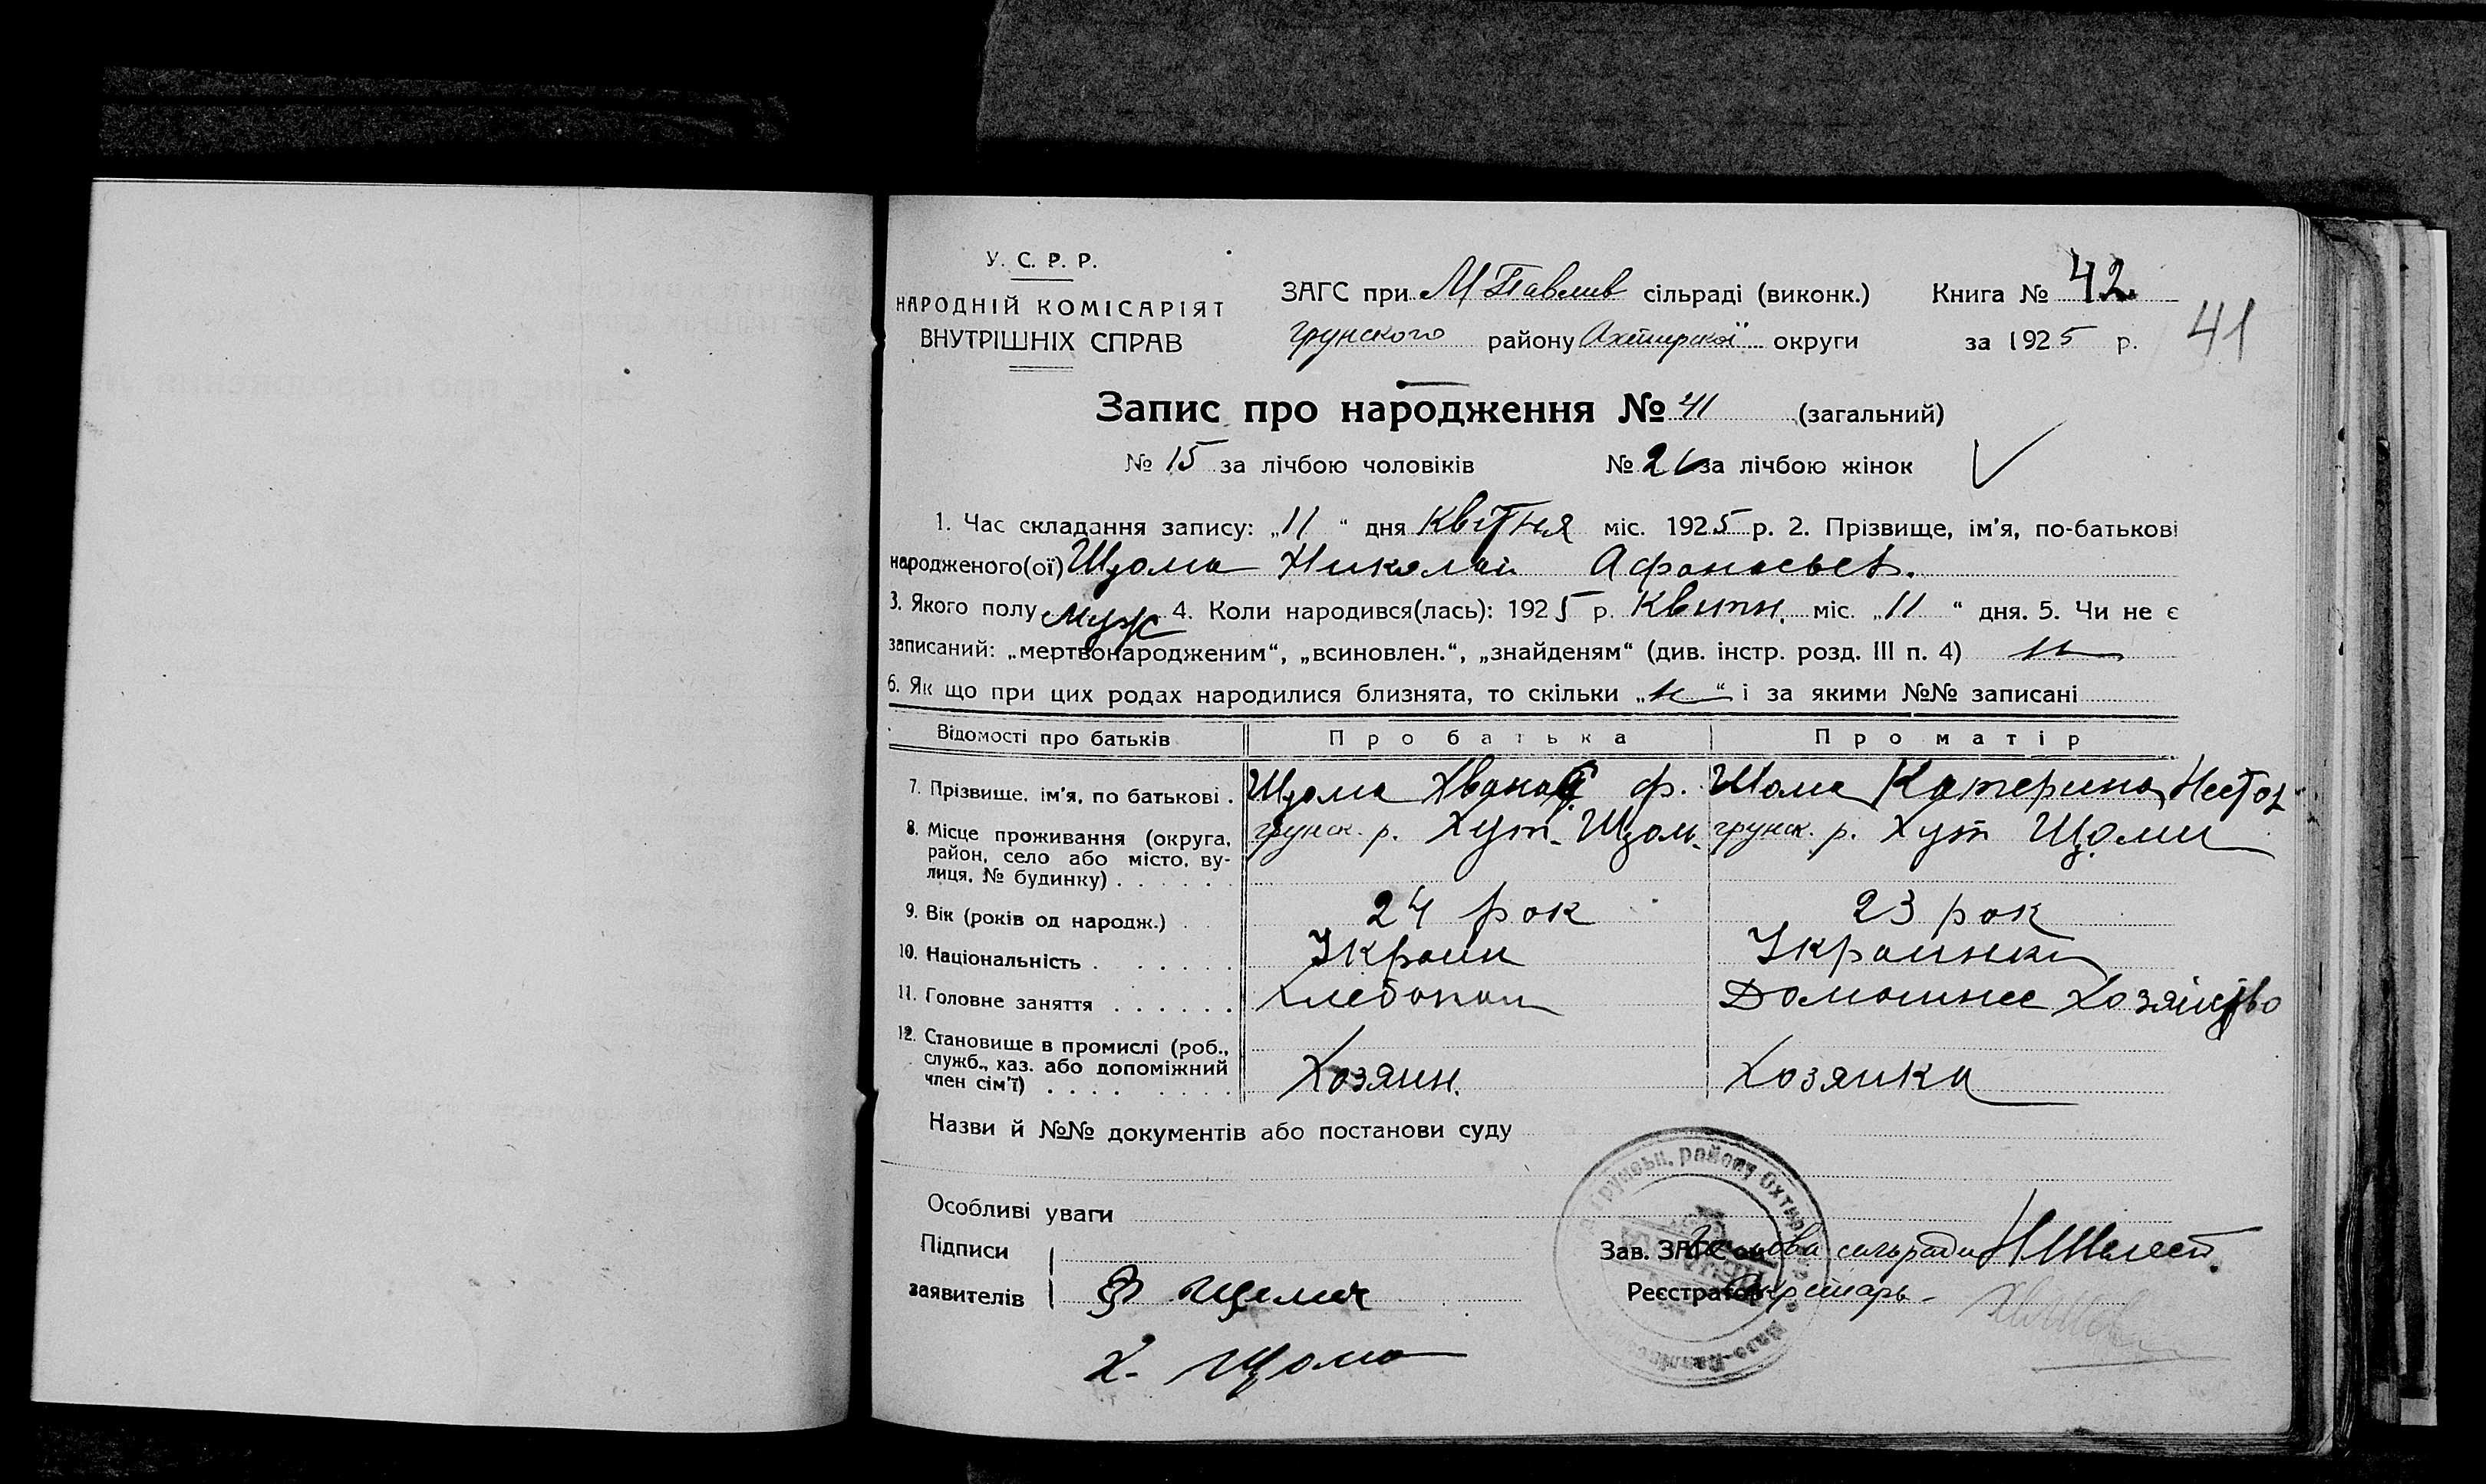 У. С. Р. Р.
НАРОДНІЙ КОМІСАРІЯТ
ВНУТРІШНІХ СПРАВ
ЗАГС при М Павлив сільраді (виконк.)
Грунского району Ахтирскої округи
Книга № 42
за 1925 р.
41
Запис про народження № 41 (загальний)
№ 15 за лічбою чоловіків № 26 за лічбою жінок
1. Час складання запису: „11“ дня Квітня міс. 1925 р. 2. Прізвище, ім'я, по-батькові
народженого(ої) Щома Николай Афанасьев.
3. Якого полу муж 4. Коли народився(лась): 1925 р. Квитн. міс. „11“ дня. 5. Чи не є
записаний: „мертвонародженим“, „всиновлен.“, „знайденям“ (див. інстр. розд. III п. 4) н
6. Як що при цих родах народилися близнята, то скільки „н“ і за якими №№ записані
Відомості про батьків Про батька Про матір
7. Прізвище, ім'я, по батькові. Щома Хванас ф. Щома Катерина Нестор
8. Місце проживання (округа, грунск. р. Хут. Щом. грунск. р. Хут Щоми
район, село або місто, ву-
лиця, № будинку)
9. Вік (років од народж.) 24 рок 23 рок
10. Національність Украин Украинка
11. Головне заняття Хлебопаш Домашнее Хозяйство
12. Становище в промислі (роб.,
служб., хаз. або допоміжний
член сім'ї) Хозяин. Хозяика
Назви й №№ документів або постанови суду
Особливі уваги
Підписи
заявителів
Щема
Х. Щома
Зав. ЗАГС'ом Голова сельради Н Шелест.
Реєстратор Секретарь